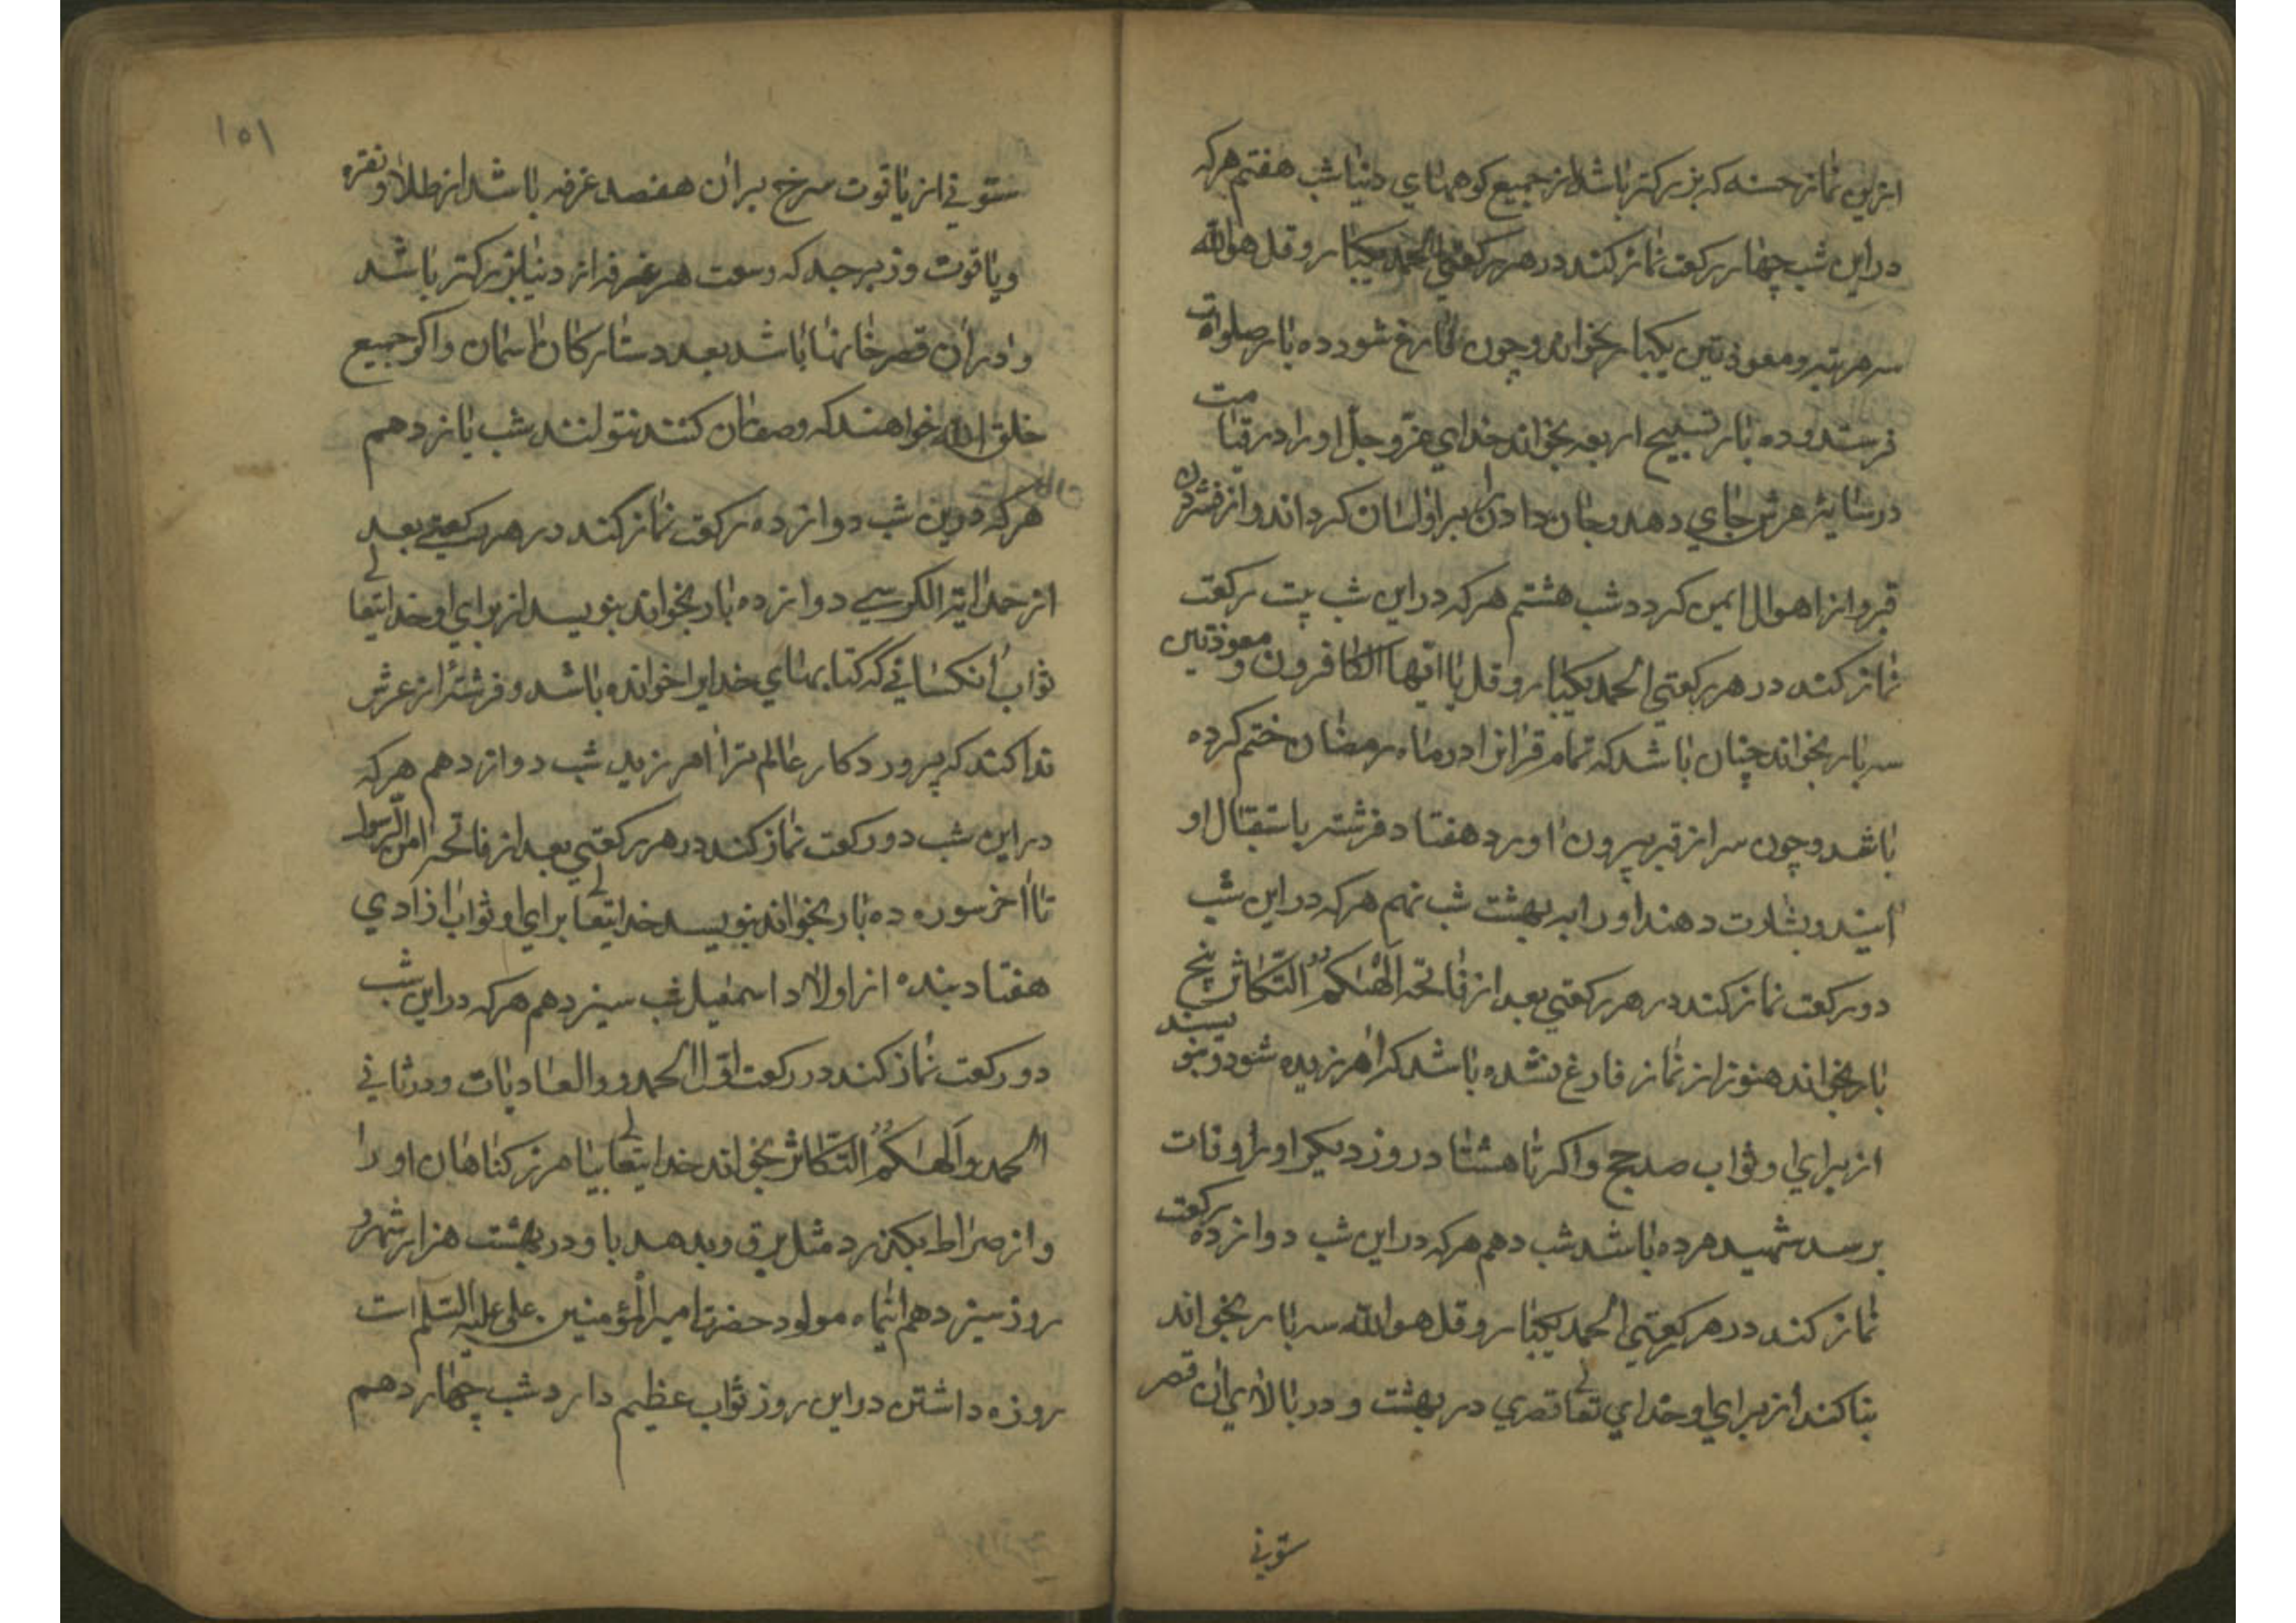 ازین نماز حسنه که بزرکتر باشد از جمیع کوههای دنیا شب هفتم هرکه
در این شب چهار رکعت نماز کند در هر رکعتی الحمد یکبار و قل هوالله
سه مرتبه و معوذتین یکبار بخواند و چون فارغ شود ده بار صلوات
فرستد و ده بار تسبیح اربعه بخواند خدای عزّ و جلّ او را در قیامت
در سایه عرش جای دهد و جان دادن بر او اسان کرداند و از فشردن
قبر و از اهوال ایمن کردد شب هشتم هرکه در این شب بیت رکعت
نماز کند در هر رکعتی الحمد یکبار و قل یا ایها الکافرون و معوذتین
سه بار بخواند چنان باشد که تمام قرانرا در ماه رمضان ختم کرده
باشد و چون سر از قبر بیرون اورد هفتاد فرشته باستقبال او
ایند و بشارت دهند او را به بهشت شب نهم هرکه در این شب
دو رکعت نماز کند در هر رکعتی بعد از فاتحه الهٰیکم التّکاثر پنج
بار بخواند هنوز از نماز فارغ نشده باشد که امرزیده شود و بنویسند
از برای او ثواب صد حج و اکر تا هشتاد روز دیکر او را وفات
برسد شهید مرده باشد شب دهم هرکه در این شب دوازده رکعت
نماز کند در هر رکعتی الحمد یکبار و قل هوالله سه بار بخواند
بنا کند از برای او خدای تعالی قصری در بهشت و در بالای ان قصر
ستونی
۱۵۱
ستونی از یاقوت سرخ بر ان هفصد غرفه باشد از طلا و نقره
و یاقوت و زبرجد که وسعت هر غرفه از دنیا بزرکتر باشد
و در ان قصر خانها باشد بعدد ستارکان اسمان و اکر جمیع
خلق الله خواهند که وصف ان کنند نتوانند شب یازدهم
هرکه درین شب دوازده رکعت نماز کند در هر رکعتی بعد
از حمد ایة الکرسی دوازده بار بخواند بنویسد از برای او خدایتعالی
ثواب انکسانی که کتابهای خدایرا خوانده باشد و فرشتهٔ از عرش
ندا کند که پروردکار عالم ترا امرزید شب دوازدهم هرکه
در این شب دو رکعت نماز کند در هر رکعتی بعد از فاتحه امن الرّسول
تا اخر سوره ده بار بخواند بنویسد خدایتعالی برای او ثواب ازادی
هفتاد بنده از اولاد اسمعیل شب سیزدهم هرکه در این شب
دو رکعت نماز کند در رکعت اوّل الحمد و والعادیات و در ثانی
الحمد و الهٰیکم التّکاثر بخواند خدایتعالی بیامرزد کناهان او را
و از صراط بکذرد مثل برق و بدهد باو در بهشت هزار شهر و
روز سیزدهم اینماه مولود حضرت امیرالمؤمنین علی علیه السّلم است
روزه داشتن در این روز ثواب عظیم دارد شب چهاردهم